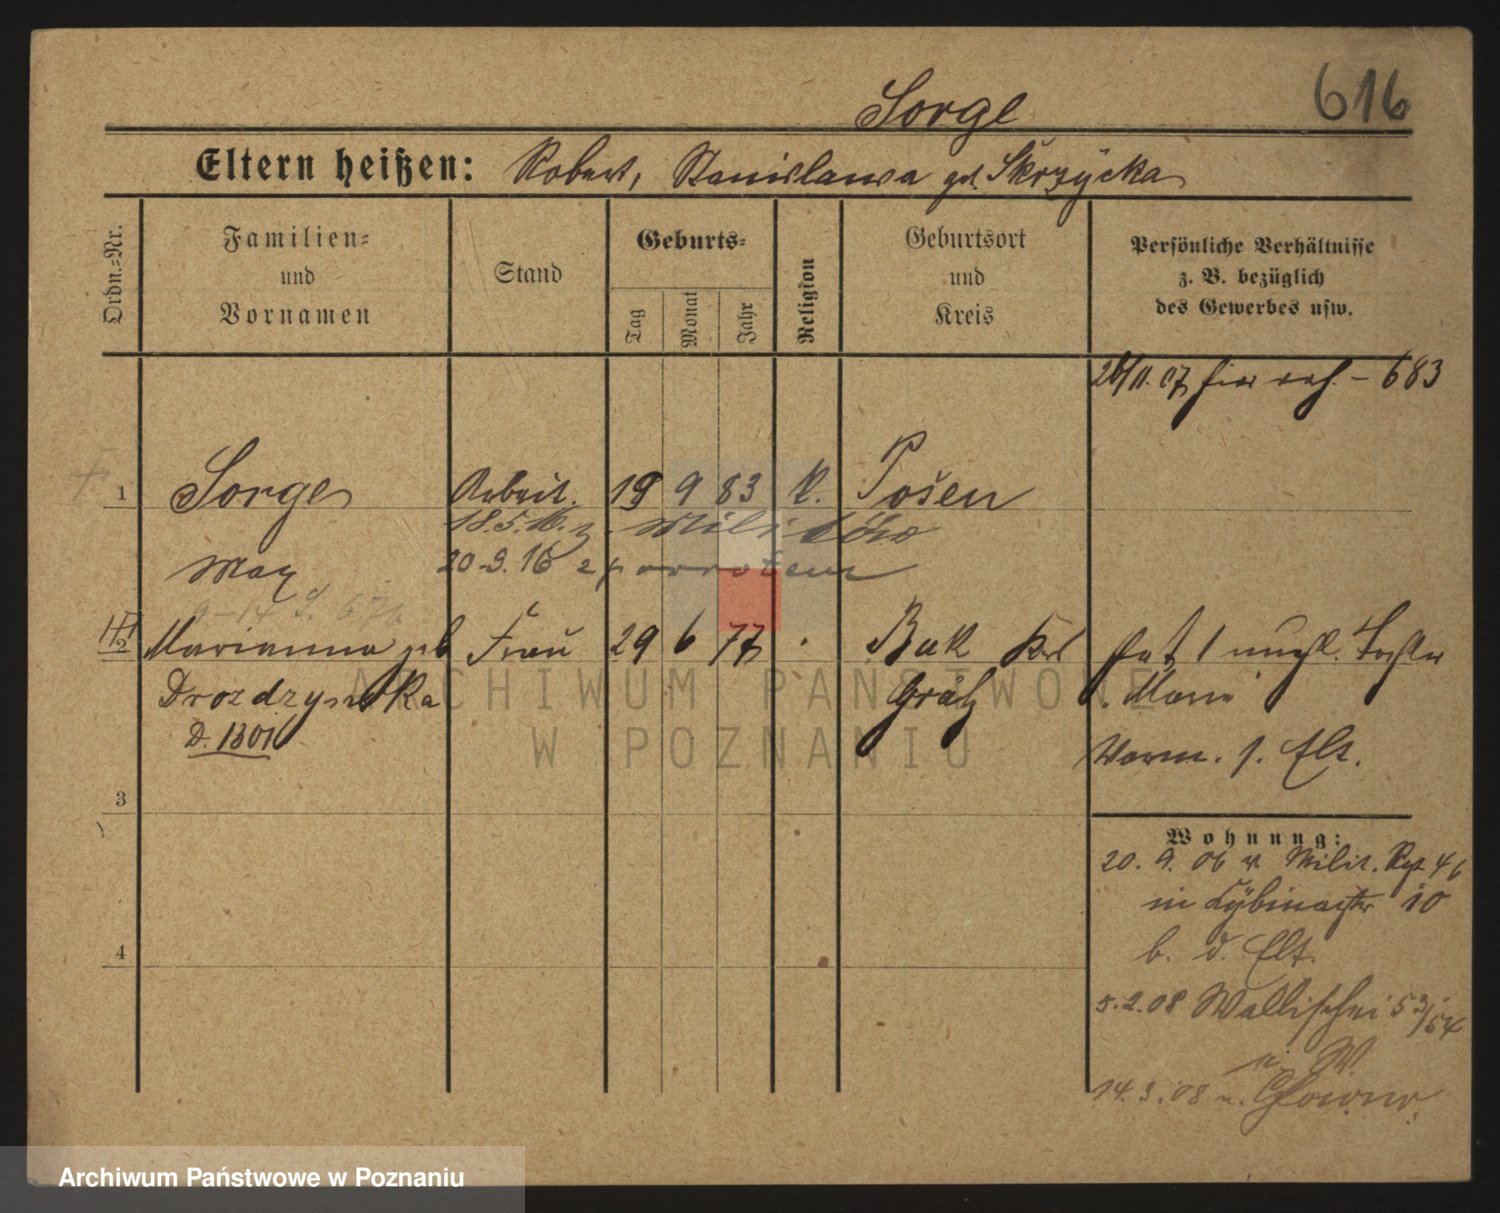 Sorge 616
Eltern heißen: Robert, Stanislawa geb. Skrzycka
Ordn.-Nr.
Familien-
und
Vornamen
Stand
Geburts-
Tag
Monat
Jahr
Religion
Geburtsort
und
Kreis
Persönliche Verhältnisse
z. B. bezüglich
des Gewerbes usw.
26/11.07 hier - 683
1 Sorge Arbeit. 19 9 83 K. Posen
18.5.16. z. Militär
20.9.16 z
Max
2 Marianna geb Frau 29 6 77 Buk Krs
Drozdzynska Grätz
D. 1301
hat 1 unehl. Tochter
Marie
Vorm. s. Elt.
3
Wohnung:
20. 9. 06 v. Milit. Rgt 46
in 10
b. d. Elt.
4
5.2.08 Wallischei 53/54
n. W.
14.3.08 n. Glowno.
ARCHIWUM PAŃSTWOWE
W POZNANIU
Archiwum Państwowe w Poznaniu